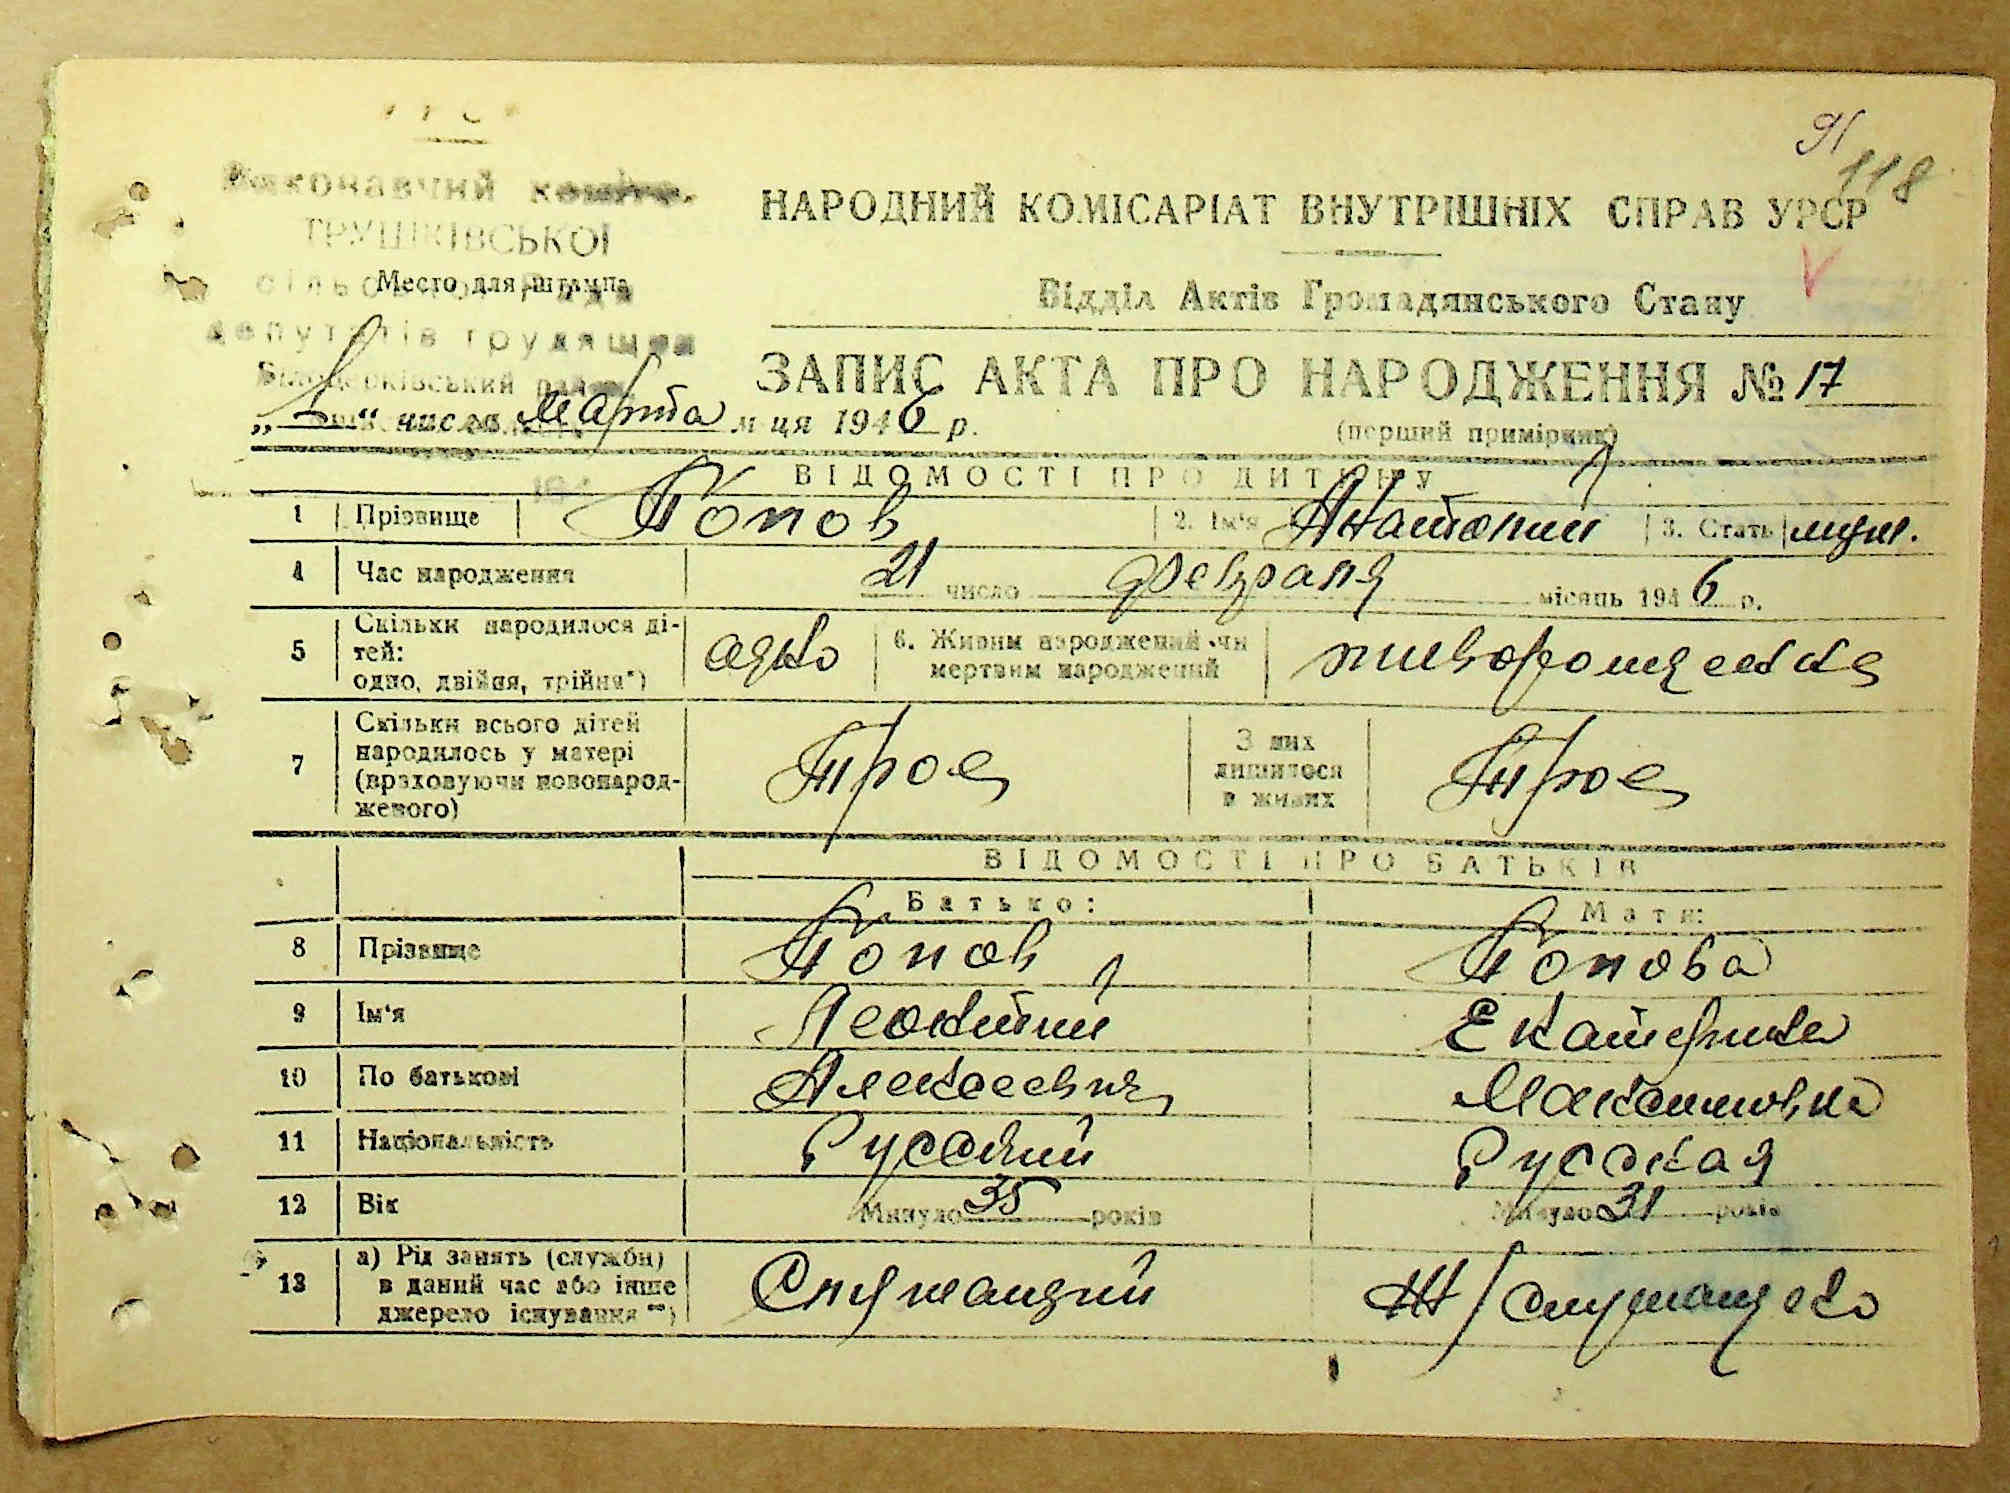 91
118
Виконавчий коміте.
ТРУШКІВСЬКОЇ
сільської Ради
Место для штампа
депутатів трудящих
Білоцерківський район
НАРОДНИЙ КОМІСАРІАТ ВНУТРІШНІХ СПРАВ УРСР
V
Відділ Актів Громадянського Стану
ЗАПИС АКТА ПРО НАРОДЖЕННЯ № 17
(перший примірник)
„1“ числа Марта м-ця 1946 р.
ВІДОМОСТІ ПРО ДИТИНУ
1 Прізвище Попов 2. Ім'я Анатолий 3. Стать муж.
4 Час народження 21 число Февраля місяць 1946 р.
5 Скільки народилося ді-
тей:
одно, двійня, трійня*) одно 6. Живим народжений чи
мертвим народжений живорожденне
7 Скільки всього дітей
народилось у матері
(враховуючи новонарод-
женого) Трое З них
лишилося
в живих Трое
ВІДОМОСТІ ПРО БАТЬКІВ
Батько: Мати:
8 Прізвище Попов Попова
9 Ім'я Леонтий Екатерина
10 По батькові Алексеевич Максимовна
11 Національність Русский Русская
12 Вік Минуло 35 років Минуло 31 років
13 а) Рід занять (служби)
в даний час або інше
джерело існування **) Служащий Ж/служащего